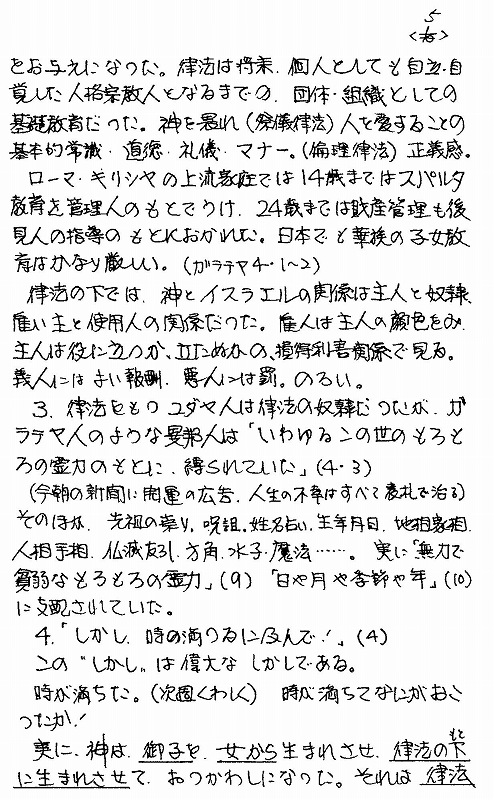 5
とお与えになった。律法は将来、個人としても自立・自
覚した人格宗教人となるまでの、団体・組織としての
基礎教育だった。神を畏れ(祭儀律法)人を愛することの
基本的常識・道徳・礼儀・マナー。(倫理律法)正義感。
ローマ・ギリシヤの上流家庭では14歳まではスパルタ
教育を管理人のもとでうけ、24歳までは財産管理も後
見人の指導のもとにおかれた。日本でも華族の子女教
育はかなり厳しい。(ガラテヤ4・1〜2)
律法の下では、神とイスラエルの関係は主人と奴隷、
雇い主と使用人の関係だった。雇人は主人の顔色をみ、
主人は役に立つか、立たぬかの、損得利害関係で見る。
義人にはよい報酬、悪人には罰。のろい。
3. 律法をもつユダヤ人は律法の奴隷だったが、ガ
ラテヤ人のような異邦人は「いわゆるこの世のもろも
ろの霊力のもとに、縛られていた」(4・3)
(今朝の新聞に開運の広告、人生の不幸はすべて表札で治る)
そのほか、先祖の祟り、呪詛、姓名占い、生年月日、地相家相、
人相手相、仏滅友引、方角、水子、魔法……。実に「無力で
貧弱なもろもろの霊力」(9)「日や月や季節や年」(10)
に支配されていた。
4.「しかし、時の満つるに及んで!」(4)
この“しかし”は偉大なしかしである。
時が満ちた。(次週くわしく) 時が満ちてなにがおこ
ったか!
実に、神は、御子を、女から生まれさせ、律法の下
に生まれさせて、おつかわしになった。それは律法